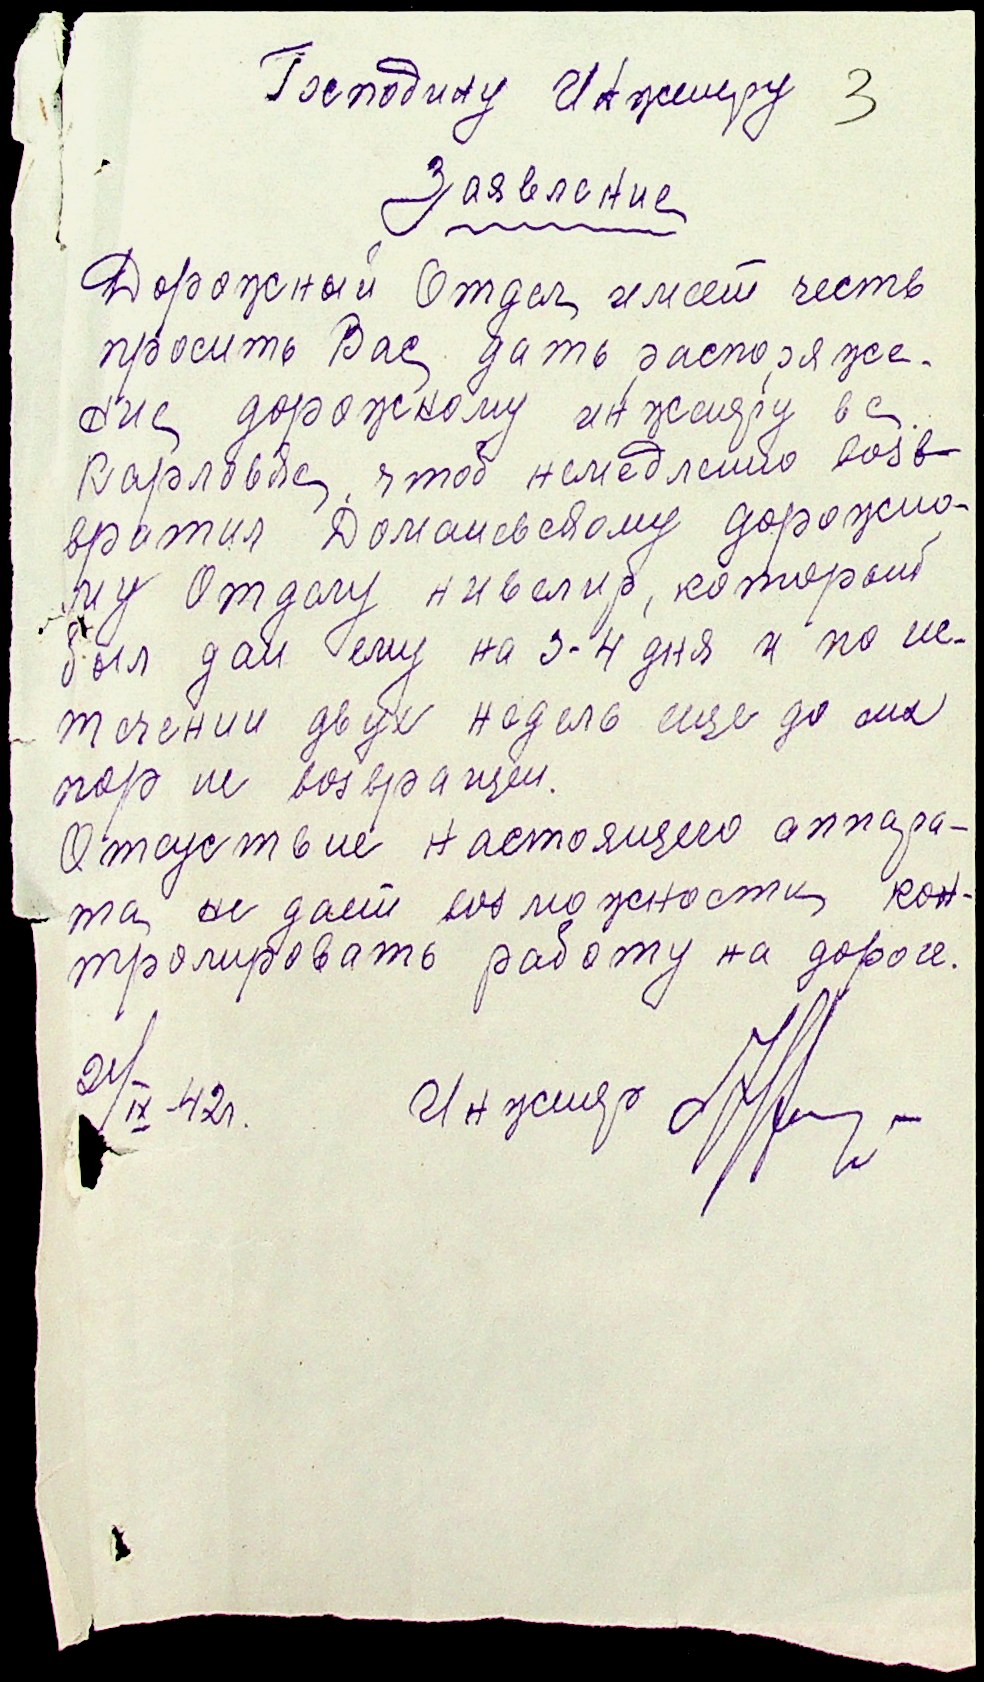 Господину Инженеру 3
Заявление
Дорожный Отдел имеет честь
просить Вас дать распоряже-
ние дорожному инженеру в с.
Карловка, чтоб немедленно возв-
вратил Доманевскому дорожно-
му Отделу нивелир, который
был дан ему на 3-4 дня и по ис-
течении двух недель еще до сих
пор не возвращен.
Отсуствие настоящего аппара-
та не дает возможности кон-
тролировать работу на дороге.
21/IX-42г. Инженер